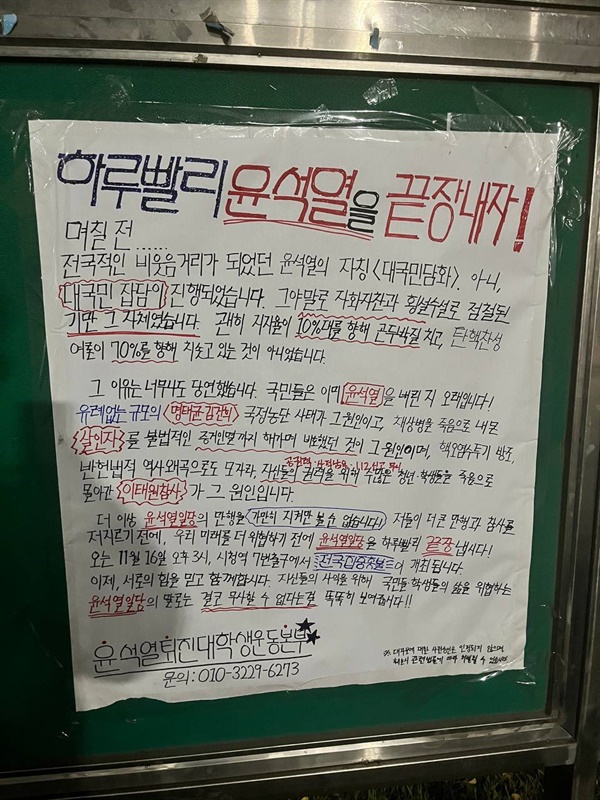 하루빨리 윤석열을 끝장내자!
며칠 전......
전국적인 비웃음거리가 되었던 윤석열의 자칭 <대국민담화>. 아니,
대국민 잡담이 진행되었습니다. 그야말로 자화자찬과 횡설수설로 점철된
기만 그 자체였습니다. 괜히 지지율이 10%대를 향해 곤두박질 치고, 탄핵찬성
여론이 70%를 향해 치솟고 있는 것이 아니었습니다.
그 이유는 너무나도 당연했습니다. 국민들은 이미 윤석열을 내린 지 오래입니다!
유례없는 규모의 <명태균·김건희> 국정농단 사태가 그 원인이고, 채상병을 죽음으로 내몬
살인자를 불법적인 증거인멸까지 해가며 비호했던 것이 그 원인이며, 핵오염수투기 방조,
반헌법적 역사왜곡으로도 모자라, 자신들의 권력을 위해 수많은 청년·학생들을 죽음으로
몰아간 이태원참사가 그 원인입니다.
더 이상 윤석열일당의 만행을 가만히 지켜만 볼 수 없습니다! 저들이 더 큰 만행과 참사를
저지르기 전에, 우리 미래를 더 위협하기 전에 윤석열일당을 하루빨리 끝장냅시다!
오는 11월 16일 오후 3시, 시청역 7번출구에서 전국집중촛불이 개최됩니다.
이제, 서로의 힘을 믿고 함께합시다. 자신들의 사익을 위해 국민들·학생들의 삶을 위협하는
윤석열일당의 말로는 결코 무사할 수 없다는걸 똑똑히 보여줍시다!!
윤석열퇴진대학생운동본부
문의: 010-3229-6273